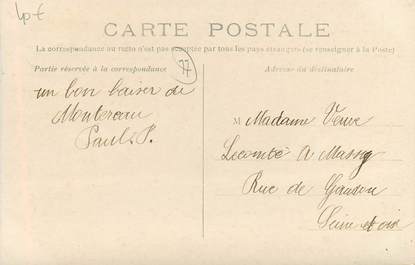 CARTE POSTALE
La correspondance au recto n'est pas acceptée par tous les pays étrangers (se renseigner à la Poste)
Partie réservée à la correspondance
Adresse du destinataire
77
un bon baiser de
Montereau
Paul. P.
M Madame Veuve
Lecomte A Massy
Rue de
Seine et oise